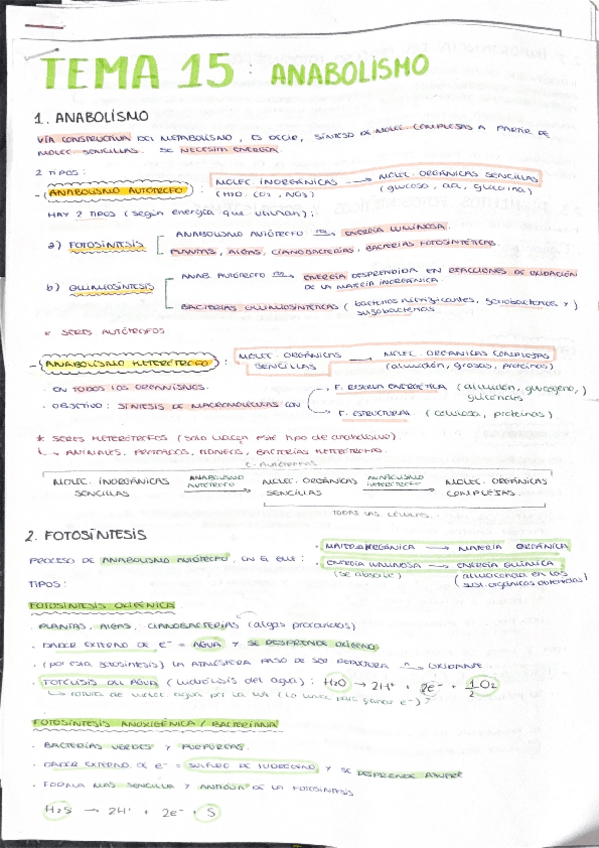 TEMA 15: ANABOLISMO
1. ANABOLISMO
VÍA CONSTRUCTIVA DEL METABOLISMO, ES DECIR, SÍNTESIS DE MOLEC. COMPLEJAS A PARTIR DE
MOLEC. SENCILLAS. SE NECESITA ENERGÍA.
2 TIPOS:
- ANABOLISMO AUTÓTROFO : MOLEC. INORGÁNICAS → MOLEC. ORGÁNICAS SENCILLAS
(H2O, CO2, NO3) (glucosa, glicerina)
HAY 2 TIPOS (según energía que utilizan):
a) FOTOSÍNTESIS ANABOLISMO AUTÓTROFO → ENERGÍA LUMINOSA.
PLANTAS, ALGAS, CIANOBACTERIAS, BACTERIAS FOTOSINTÉTICAS.
b) QUIMIOSÍNTESIS ANAB. AUTÓTROFO → ENERGÍA DESPRENDIDA EN REACCIONES DE OXIDACIÓN
DE LA MATERIA INORGÁNICA.
BACTERIAS QUIMIOSINTÉTICAS (bacterias nitrificantes, y)
* SERES AUTÓTROFOS
- ANABOLISMO HETERÓTROFO : MOLEC. ORGÁNICAS SENCILLAS → MOLEC. ORGÁNICAS COMPLEJAS
(almidón, grasas, proteínas)
· EN TODOS LOS ORGANISMOS.
· OBJETIVO: SÍNTESIS DE MACROMOLÉCULAS CON F. RESERVA ENERGÉTICA (almidón, glucógeno,)
F. ESTRUCTURAL (celulosa, proteínas)
* SERES HETERÓTROFOS (solo hacen este tipo de anabolismo)
↳ ANIMALES, PROTOZOOS, HONGOS, BACTERIAS HETERÓTROFAS.
C. AUTÓTROFAS
MOLEC. INORGÁNICAS SENCILLAS ANABOLISMO AUTÓTROFO → MOLEC. ORGÁNICAS SENCILLAS ANABOLISMO HETERÓTROFO → MOLEC. ORGÁNICAS COMPLEJAS
TODAS LAS CÉLULAS.
2. FOTOSÍNTESIS
PROCESO DE ANABOLISMO AUTÓTROFO, EN EL QUE: · MATERIA INORGÁNICA → MATERIA ORGÁNICA
· ENERGÍA LUMINOSA → ENERGÍA QUÍMICA
(se absorbe) (almacenada en las sust. orgánicas obtenidas)
TIPOS:
FOTOSÍNTESIS OXIGÉNICA
· PLANTAS, ALGAS, CIANOBACTERIAS (algas procariotas)
· DADOR EXTERNO DE e- = AGUA Y SE DESPRENDE OXÍGENO
· (por esta fotosíntesis) LA ATMÓSFERA PASÓ DE SER REDUCTORA → OXIDANTE.
· FOTÓLISIS DEL AGUA (hidrólisis del agua): H2O → 2H+ + 2e- + 1/2 O2
↳ rotura de molec. agua por la luz (lo hace para ganar e-)
FOTOSÍNTESIS ANOXIGÉNICA / BACTERIANA
· BACTERIAS VERDES Y PURPÚREAS.
· DADOR EXTERNO DE e- = SULFURO DE HIDRÓGENO Y SE DESPRENDE AZUFRE
· FORMA MÁS SENCILLA Y ANTIGUA DE LA FOTOSÍNTESIS
H2S → 2H+ + 2e- + S